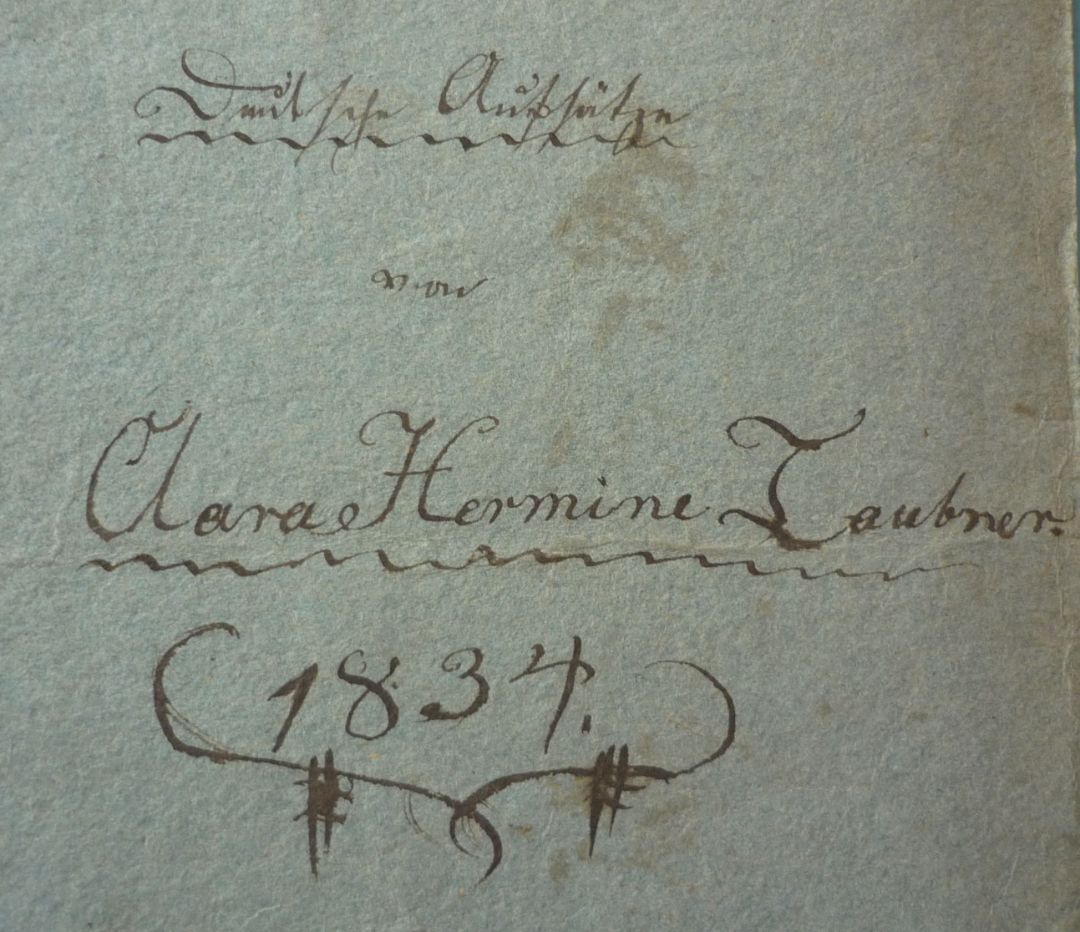 Deutsche Aufsätze
von
Clara Hermine Taubner.
1834.